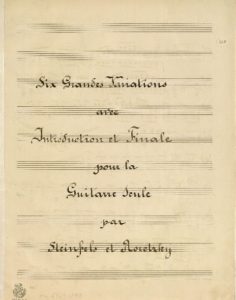 Six Grandes Variations
avec
Introduction et Finale
pour la
Guitarre Seule
par
Steinfels et